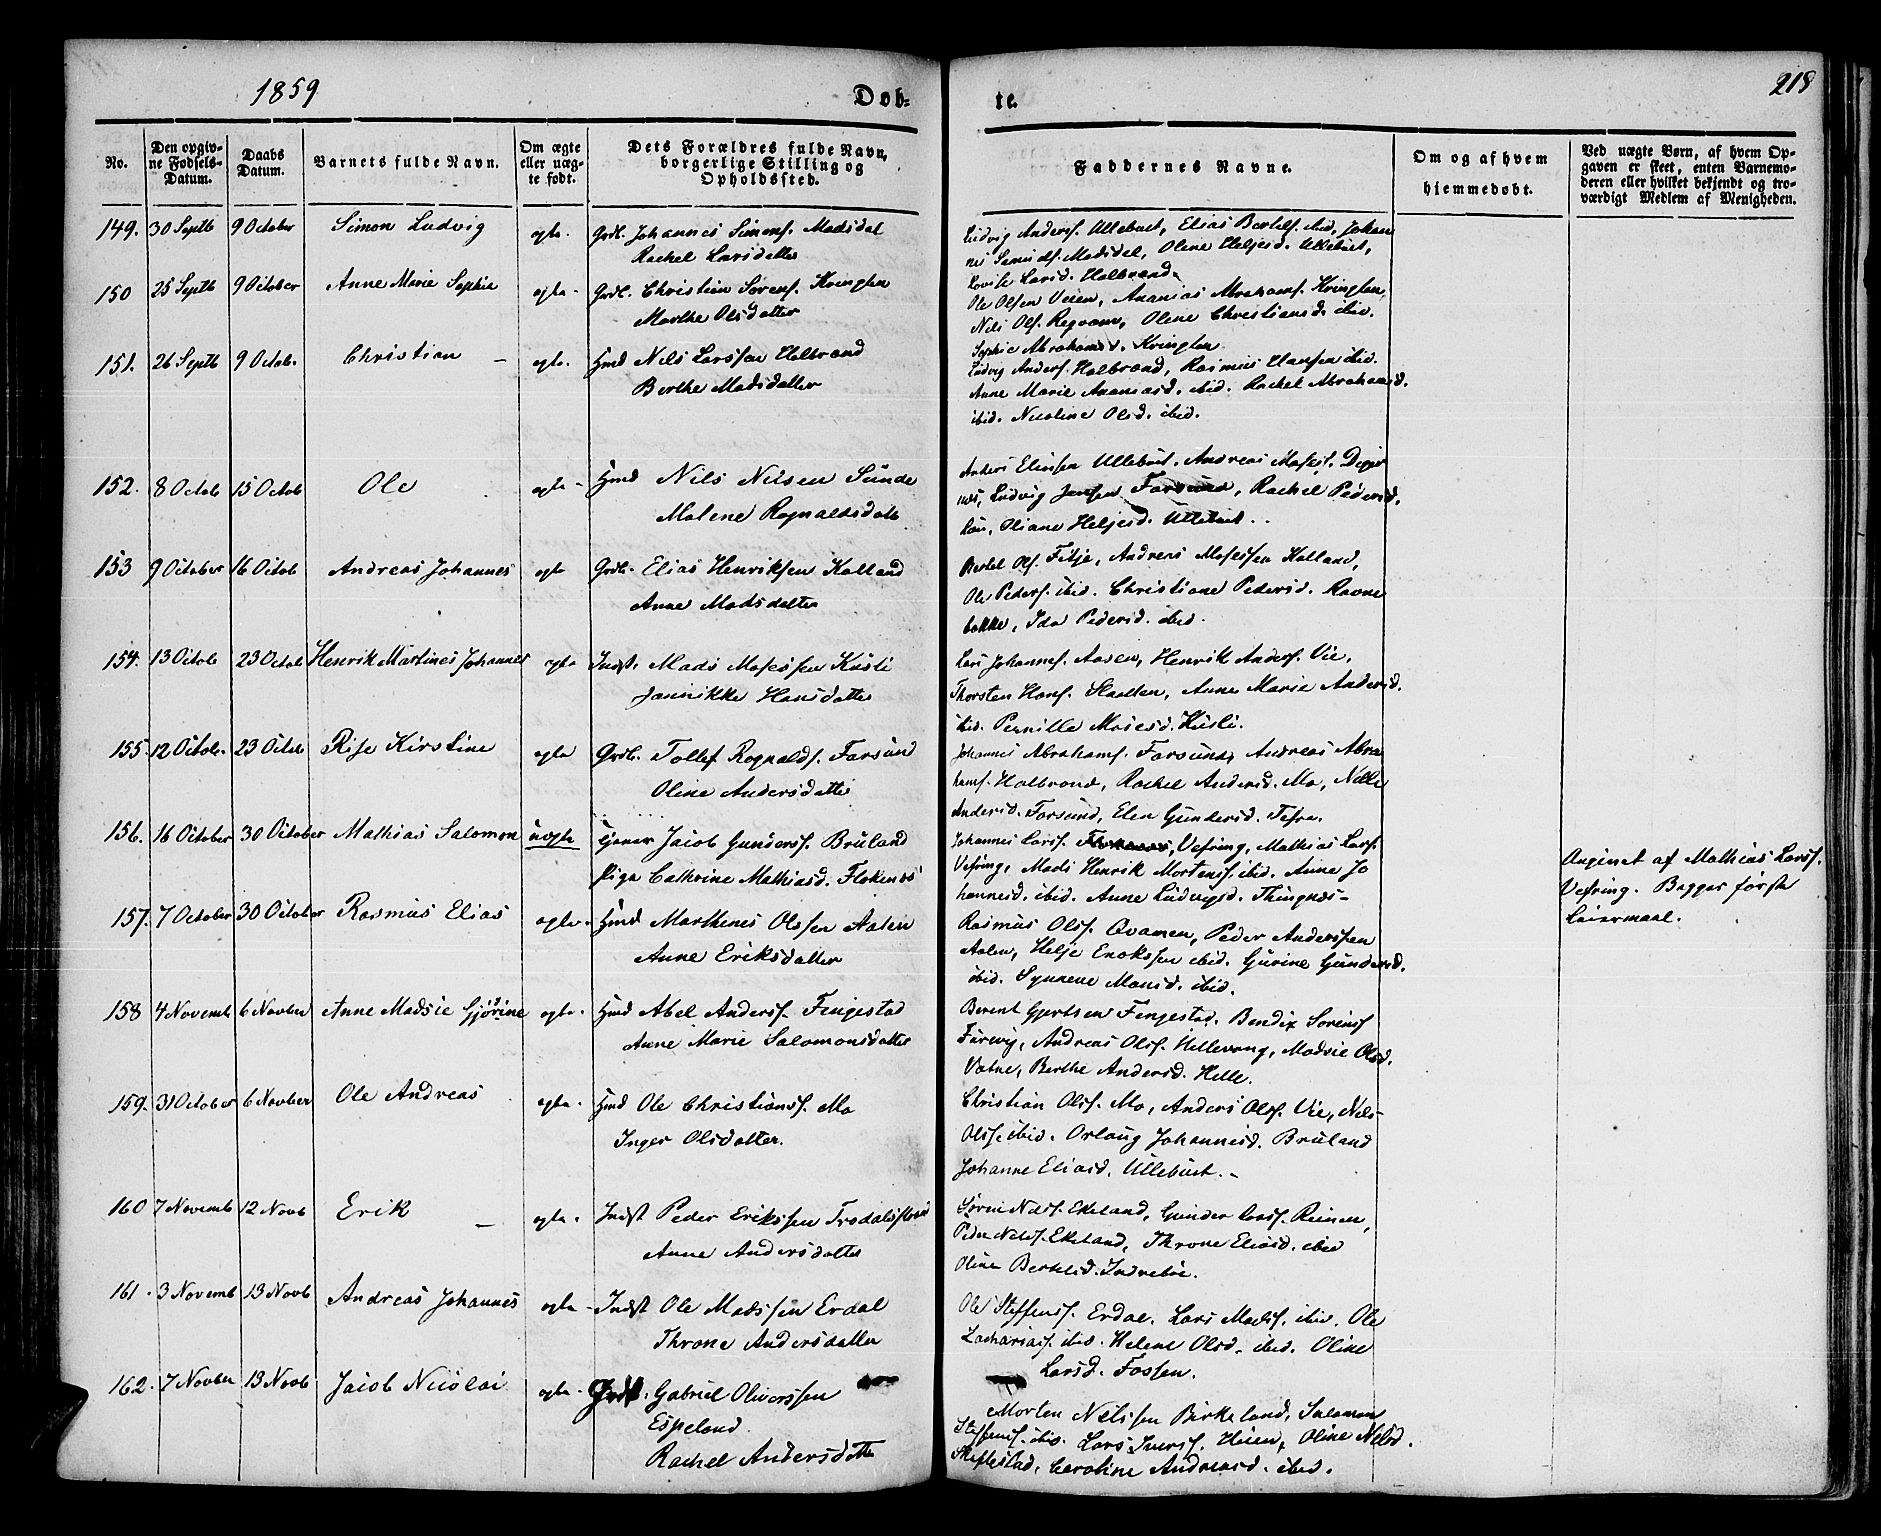 1859
Døb-
te.
218
No.
Den opgiv-
ne Fødsels-
Datum.
Daabs
Datum.
Barnets fulde Navn.
Om ægte
eller uæg-
te født.
Dets Forældres fulde Navn,
borgerlige Stilling og
Opholdssted.
Faddernes Navne.
Om og af hvem
hjemmedøbt.
Ved uægte Børn, af hvem Op-
gaven er skeet, enten Barnemo-
deren eller hvilket bekjendt og tro-
værdigt Medlem af Menigheden.
149. 30 Septb 9 October Simon Ludvig egte. Grdb. Johannes Simons. Madsdal
Rachel Larsdatter
Ludvig Anders. Ullebust, Elias Bertels. ibid, Johan
nes Madsdal, Oline Heljesd. Ullebust,
Lovise Larsd. Halbrand.
150 25 Septb 9 October Anne Marie Sophia egte - Grdb. Christian Sørens. Kringlen
Marthe Olsdatter
Ole Olsen Veien, Ananias Abrahams. Kringlen,
Nils Ols. Regvam, Oline Christiansd. ibid.
Sophie Abrahamsd. Kringlen
151. 26 Septb 9 Octob. Christian - egte. Hmd Nils Larssen Halbrand
Berthe Madsdatter
Ludvig Anders. Halbrand, Rasmus Hansen ibid.
Anne Marie Ananiasd. ibid. Rachel Abrahamsd.
ibid. Nicoline Olsd. ibid.
152. 8 Octob 15 Octob Ole egte - Hmd Nils Nilsen Sunde
Malene Rognaldsdatt
Anders Eliasen Ullebust. Andreas Moses. Digger
næs, Ludvig Jensen Farsund, Rachel Pedersd.
Oliane Heljesd. Ullebust..
153 9 October 16 Octob Andreas Johannes egte Grdb. Elias Henriksen Kalland
Anne Madsdatter
Bertel Ols. Fitje, Andreas Mosessen Kalland,
Ole Peders. ibid. Christiane Pedersd. Ravne
bakke, Ida Pedersd. ibid.
154. 13 Octob 23 Octob Henrik Martines Johannes egte Indst. Mads Mosessen Kusli
Jannikke Hansdatter
Lars Johannes. Aasen, Henrik Anders. Vie,
Thorsten Hans. Anne Marie Andersd.
ibid. Pernille Mosesd. Kusli.
155. 12 Octob. 23 Octob Rise Kirstine egte Grdb. Tollef Rognalds. Farsund
Oline Andersdatter
Johannes Abrahams. Farsund, Andreas Abra
hams. Halbrand, Rachel Andersd. Mo, Nille
Andersd. Farsund, Elen Gundersd. Tefre.
156. 16 October 30 October Mathias Salomon uægte Tjener Jacob Gunders. Bruland
Piga Cathrine Mathiasd. Flokenes
Johannes Lars. Vefring, Mathias Lars.
Vefring, Mads Henrik Mortens. ibid. Anne Jo
hannesd. ibid. Anne Ludvigsd. Thingnæs -
Angivet af Mathias Larss.
Vefring. Begges første
Leiermaal.
157. 7 October 30 October Rasmus Elias egte. Hmd Marthenes Olssen Aalen
Anne Eriksdatter
Rasmus Ols. Qvamen, Peder Anderssen
Aalen, Helje Enokssen ibid. Gurine Gundersd.
ibid. Synneve Monsd. ibid.
158 4 Novemb 6 Novber Anne Madsie Gjørine egte. Hmd Abel Anders. Fengestad
Anne Marie Salomonsdatter
Berent Gjertsen Fengestad. Bendix Sørens
Furevig, Andreas Ols. Hellevang, Madsie Olsd.
Vatne, Berthe Andersd. Helle.
159. 31 October 6 Novber Ole Andreas egte. Hmd Ole Christians. Mo
Inger Olsdatter.
Christian Ols. Mo, Anders Ols. Vie, Nels
Ols. ibid. Orlaug Johannesd. Bruland
Johanne Eliasd. Ullebust. -
160 7 Novemb 12 Novb Erik - egte. Indst Peder Erikssen Trodalsstrand
Anne Andersdatter
Søren Nels. Ekeland, Gunder Lars. Reinen,
Peder Nels. Ekeland, Throne Eliasd. ibid
Oline Bertelsd. Indrebøe.
161. 3 Novemb 13 Novb Andreas Johannes egte - Indst Ole Madssen Erdal
Throne Andersdatter
Ole Steffens. Erdal. Lars Mads. ibid. Ole
Zacharias. ibid. Helene Olsd. ibid. Oline
Larsd. Fossen.
162. 7 Novber 13 Novb Jacob Nicolai egte. Grdb. Gabriel Oliverssen
Espeland
Rachel Andersdatte
Morten Nelssen Birkeland, Salamon
Steffens. ibid. Lars Ivers. Heien, Oline Nelsd.
Skiftestad, Caroline Andreasd. ibid.